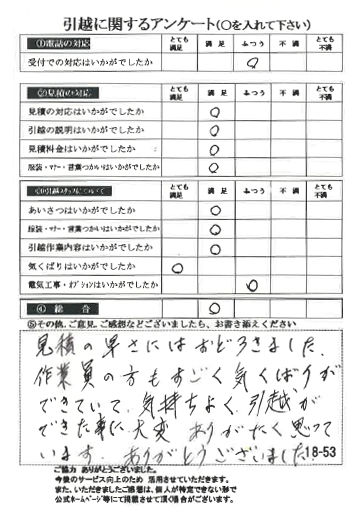 引越に関するアンケート(〇を入れて下さい)
①電話の対応 とても満足 満足 ふつう 不満 とても不満
受付での対応はいかがでしたか 〇
②見積の対応 とても満足 満足 ふつう 不満 とても不満
見積の対応はいかがでしたか 〇
引越の説明はいかがでしたか 〇
見積料金はいかがでしたか 〇
服装・マナー・言葉つかいはいかがでしたか 〇
③引越スタッフについて とても満足 満足 ふつう 不満 とても不満
あいさつはいかがでしたか 〇
服装・マナー・言葉つかいはいかがでしたか 〇
引越作業内容はいかがでしたか 〇
気くばりはいかがでしたか 〇
電気工事・オプションはいかがでしたか 〇
④総合 〇
⑤その他、ご意見、ご感想などございましたら、お書き添えください
見積の早さにはおどろきました。
作業員の方もすごく気くばりが
できていて、気持ちよく、引越が
できた事に、大変ありがたく思って
います。ありがとうございました。
18-53
ご協力 ありがとうございました。
今後のサービス向上のため 活用させていただきます。
また、いただきましたご感想は、個人が特定できない形で
公式ホームページ等にて掲載させて頂く場合がございます。